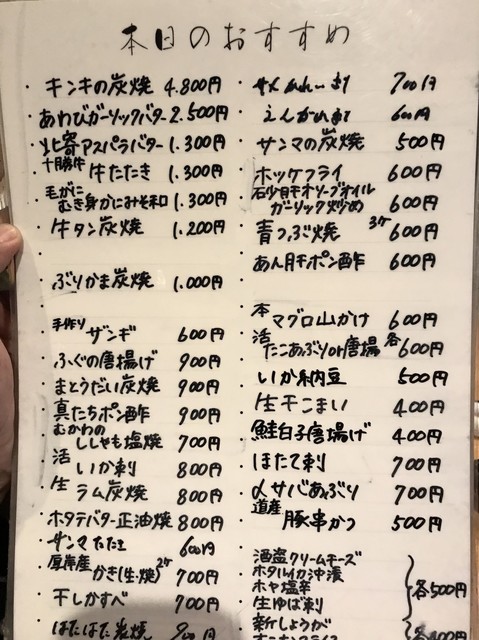 本日のおすすめ
・キンキの炭焼 4.800円
・あわびガーリックバター 2.500円
・北寄アスパラバター 1.300円
・十勝牛 牛たたき 1.300円
・毛がに むき身かにみそ和 1.300円
・牛タン炭焼 1.200円
・
・ぶりかま炭焼 1.000円
・手作り ザンギ 600円
・ふぐの唐揚げ 900円
・まとうだい炭焼 900円
・真たちポン酢 900円
・むかわの ししゃも塩焼 700円
・活 いか刺 800円
・生 ラム炭焼 800円
・ホタテバター正油焼 800円
・サンマたたき 600円
・厚岸産 かき(生・焼)2ケ 700円
・干しかすべ 700円
・はたはた炭焼
・700円
・600円
・サンマの炭焼 500円
・ホッケフライ 600円
・石少肝オリーブオイル ガーリック炒め 600円
・青つぶ焼 3ケ 600円
・あん肝ポン酢 600円
・
・本マグロ山かけ 600円
・活 たこあぶりor唐揚 各600円
・いか納豆 500円
・生干こまい 400円
・鮭白子唐揚げ 400円
・ほたて刺 700円
・〆サバあぶり 700円
・道産 豚串かつ 500円
・酒盗クリームチーズ
ホタルイカ沖漬
ホヤ塩辛
生ゆば刺
各500円
新しょうが